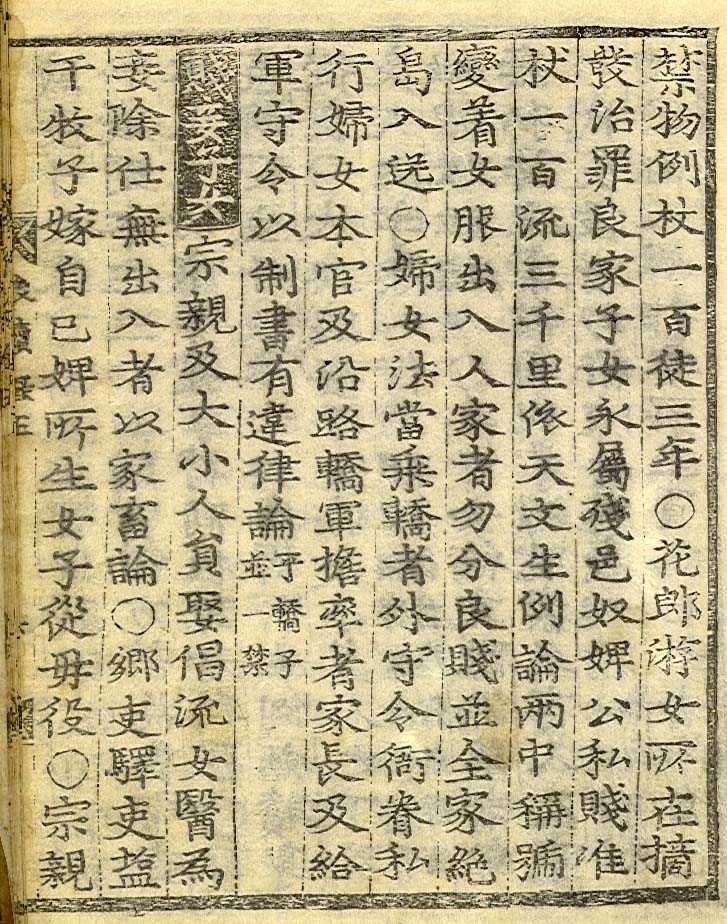 禁物例杖一百徒三年○花郎游女所在摘
發治罪良家子女永屬殘邑奴婢公私賤准
杖一百流三千里依天文生例論兩中稱號
變着女服出入人家者勿分良賤並全家絶
島入送○婦女法當乘轎者外守令衙眷私
行婦女本官及沿路轎軍擔率者家長及給
軍守令以制書有違律論平轎子並一禁
賤妾子女宗親及大小人員娶倡流女醫爲
妾除仕無出入者以家畜論○鄕吏驛吏塩
干牧子嫁自己婢所生女子從毋役○宗親